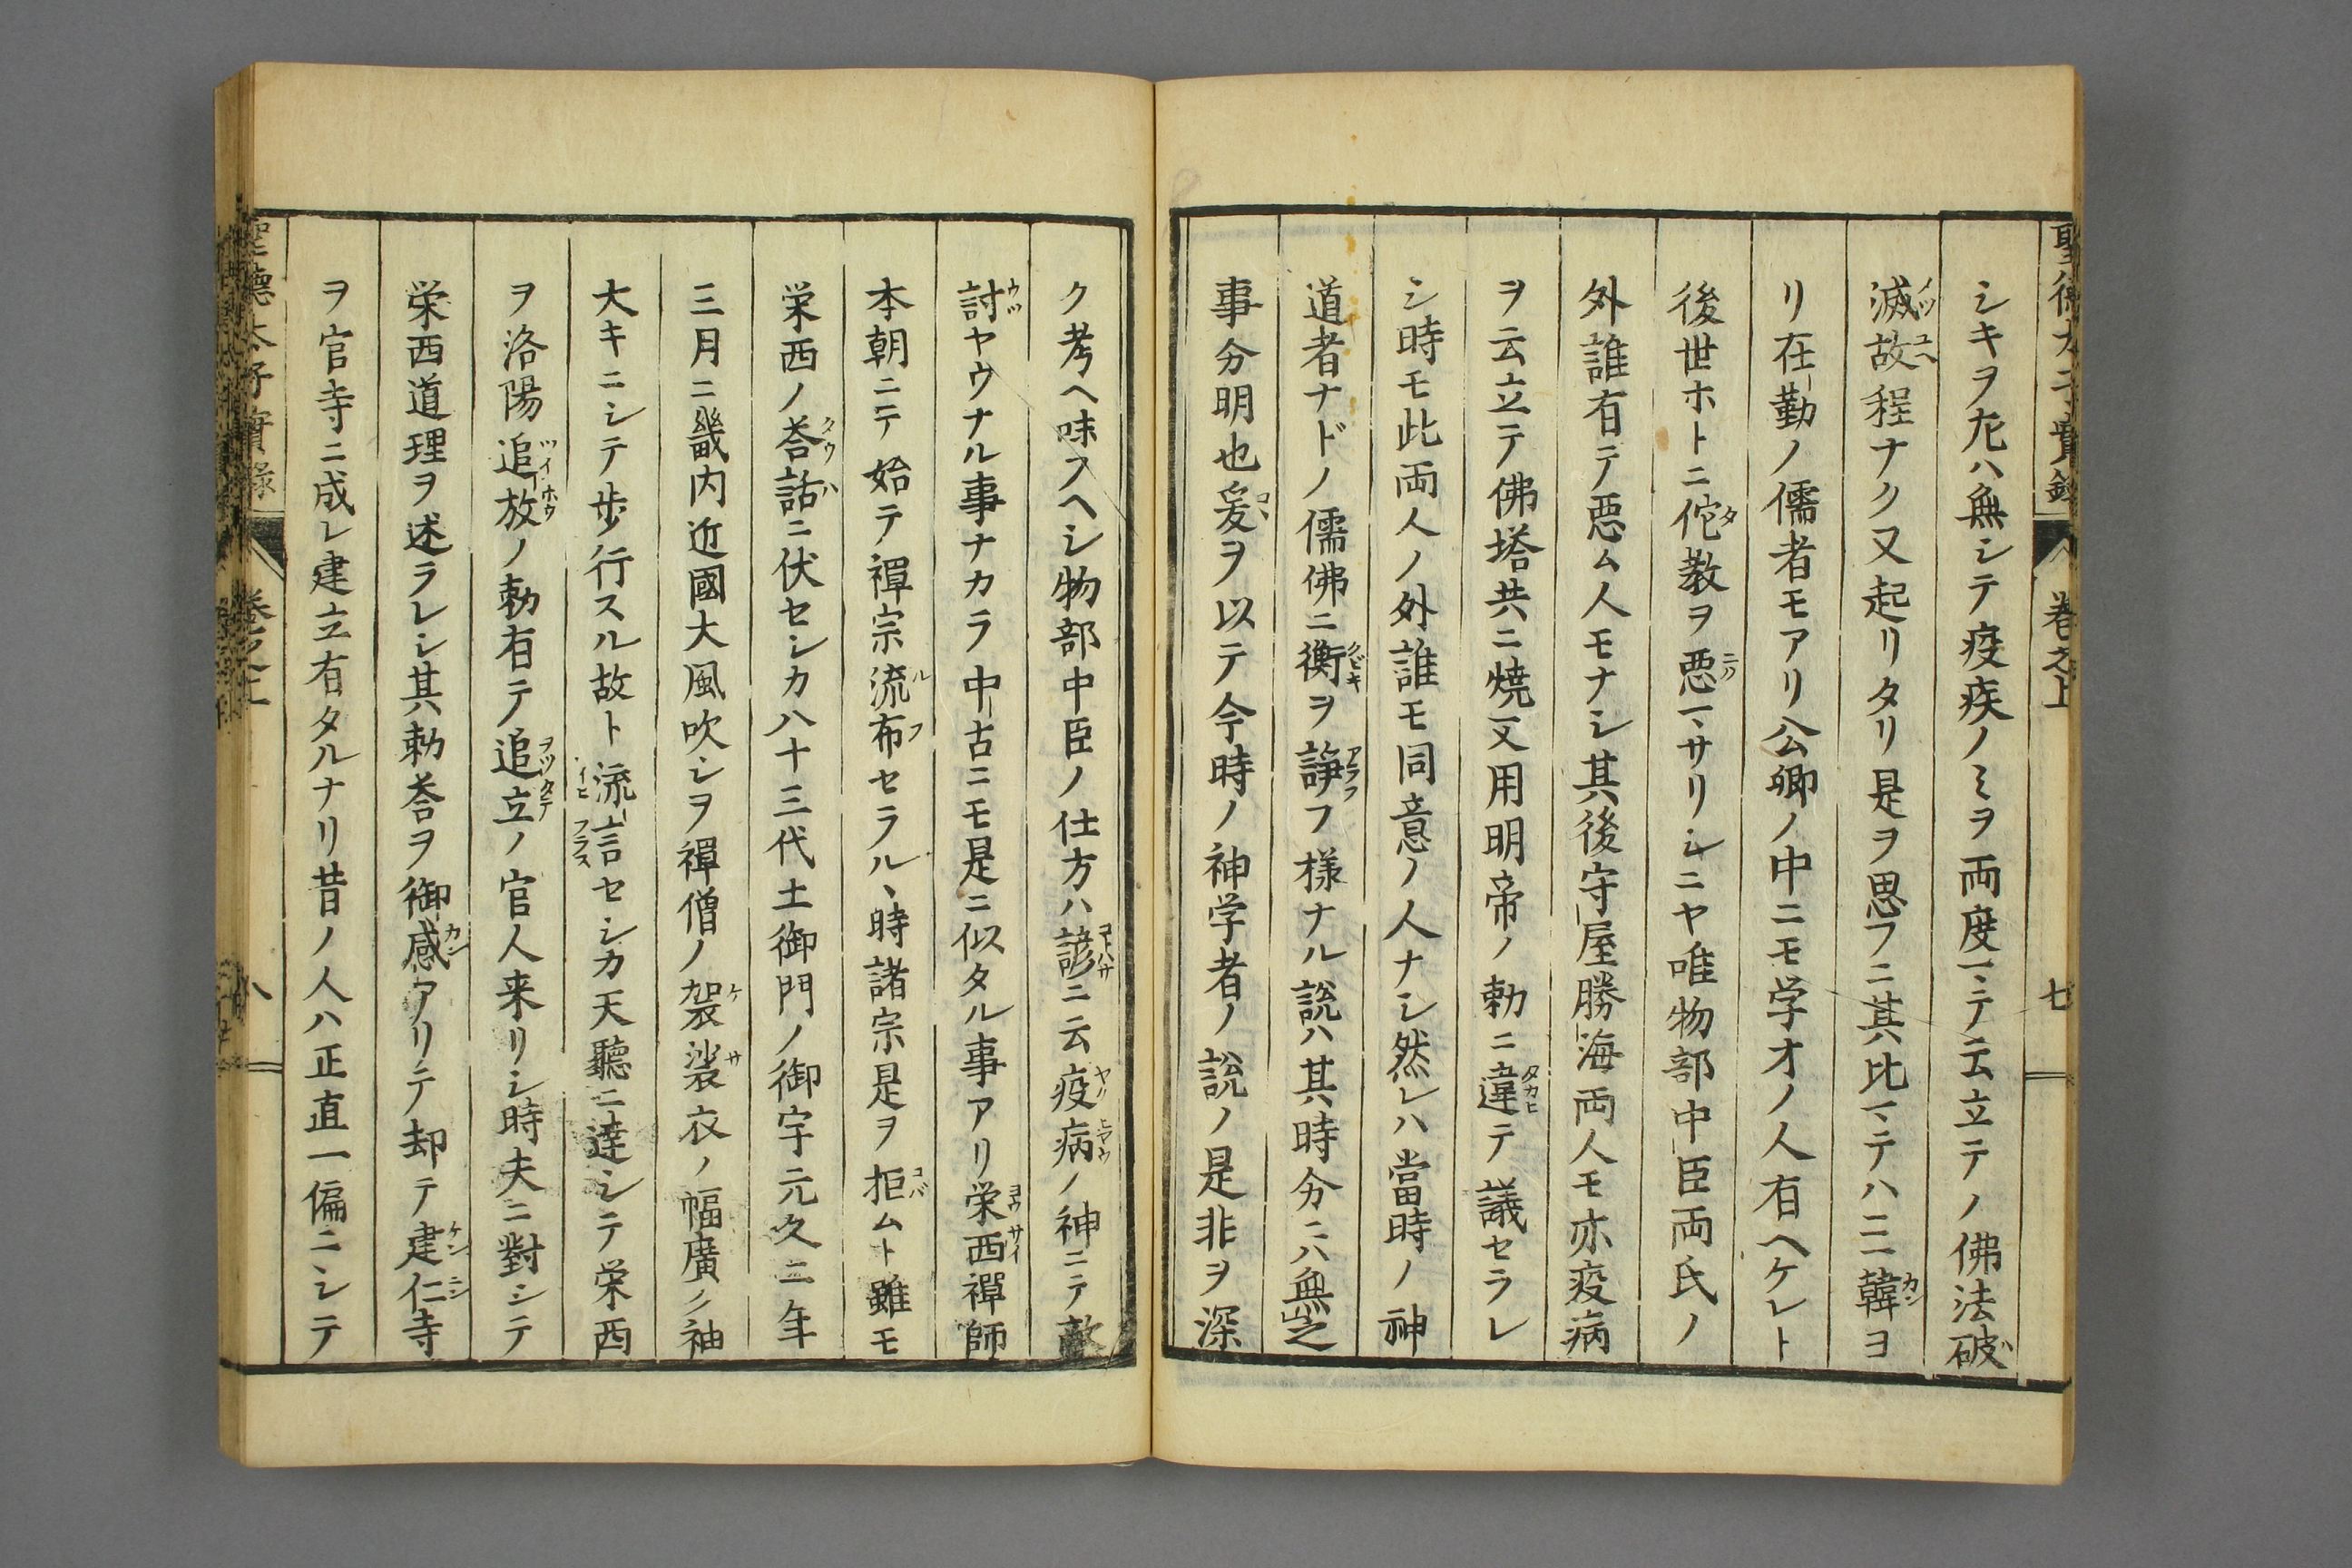 聖徳太子實録 巻之上 七
シキヲ尤ハ無シテ疫疾ノミヲ両度マテ云立テノ佛法破
滅故程ナク又起リタリ是ヲ思フニ其比マテハ三韓ヨ
リ在勤ノ儒者モアリ公卿ノ中ニモ学才ノ人有ヘケレト
後世ホトニ佗教ヲ悪マサリシニヤ唯物部中臣両氏ノ
外誰有テ悪ム人モナシ其後守屋勝海両人モ亦疫病
ヲ云立テ佛塔共ニ焼又用明帝ノ勅ニ違テ議セラレ
シ時モ此両人ノ外誰モ同意ノ人ナシ然レハ當時ノ神
道者ナドノ儒佛ニ衡ヲ諍フ様ナル説ハ其時分ニハ無之
事分明也爰ヲ以テ今時ノ神学者ノ説ノ是非ヲ深
ク考ヘ味フヘシ物部中臣ノ仕方ハ諺ニ云疫病ノ神ニテ敵
討ヤウナル事ナカラ中古ニモ是ニ似タル事アリ栄西禪師
本朝ニテ始テ禪宗流布セラルヽ時諸宗是ヲ拒ムト雖モ
栄西ノ荅話ニ伏セシカ八十三代土御門ノ御宇元久二年
三月ニ畿内近國大風吹シヲ禪僧ノ袈裟衣ノ幅廣ク袖
大キニシテ歩行スル故ト流言セシカ天聽ニ達シテ栄西
ヲ洛陽追放ノ勅有テ追立ノ官人来リシ時夫ニ對シテ
栄西道理ヲ述ラレシ其勅荅ヲ御感アリテ却テ建仁寺
ヲ官寺ニ成レ建立有タルナリ昔ノ人ハ正直一偏ニシテ
聖德太子實録 巻之上 八